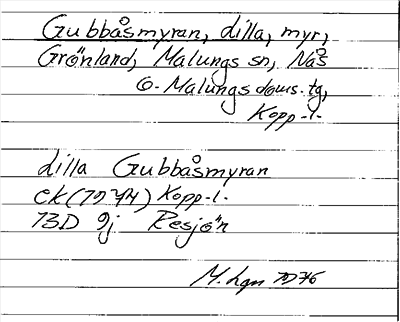 Gubbåsmyran, dilla, myr,
Grönland, Malungs sn, Nås
o. Malungs doms. tg,
Kopp. l.
dilla Gubbåsmyran
ek (1974) Kopp. l.
13D 9j Resjön
M. Lgn 1976